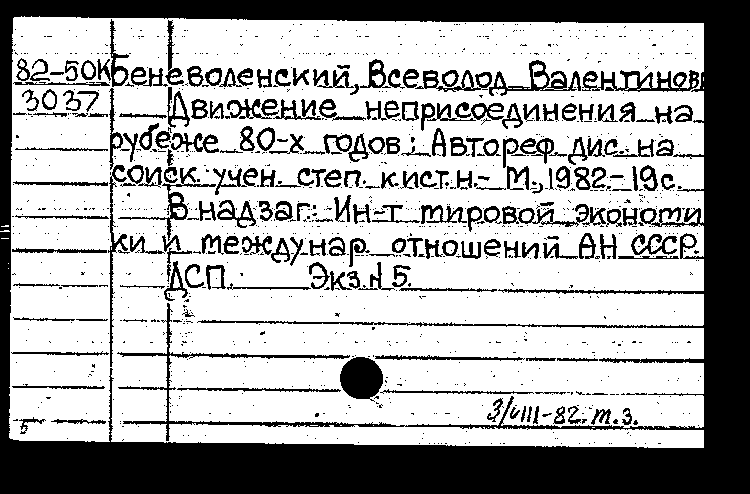 82-50К Беневоленский, Всеволод Валентинови
3037 Движение неприсоединения на
рубеже 80-х годов: Автореф. дис. на
соиск. учен. степ. к.ист.н.- М., 1982.-19с.
В надзаг.: Ин-т мировой экономи
ки и междунар. отношений АН СССР.
ДСП. Экз.N 5.
3/VIII-82. т.з.
Б